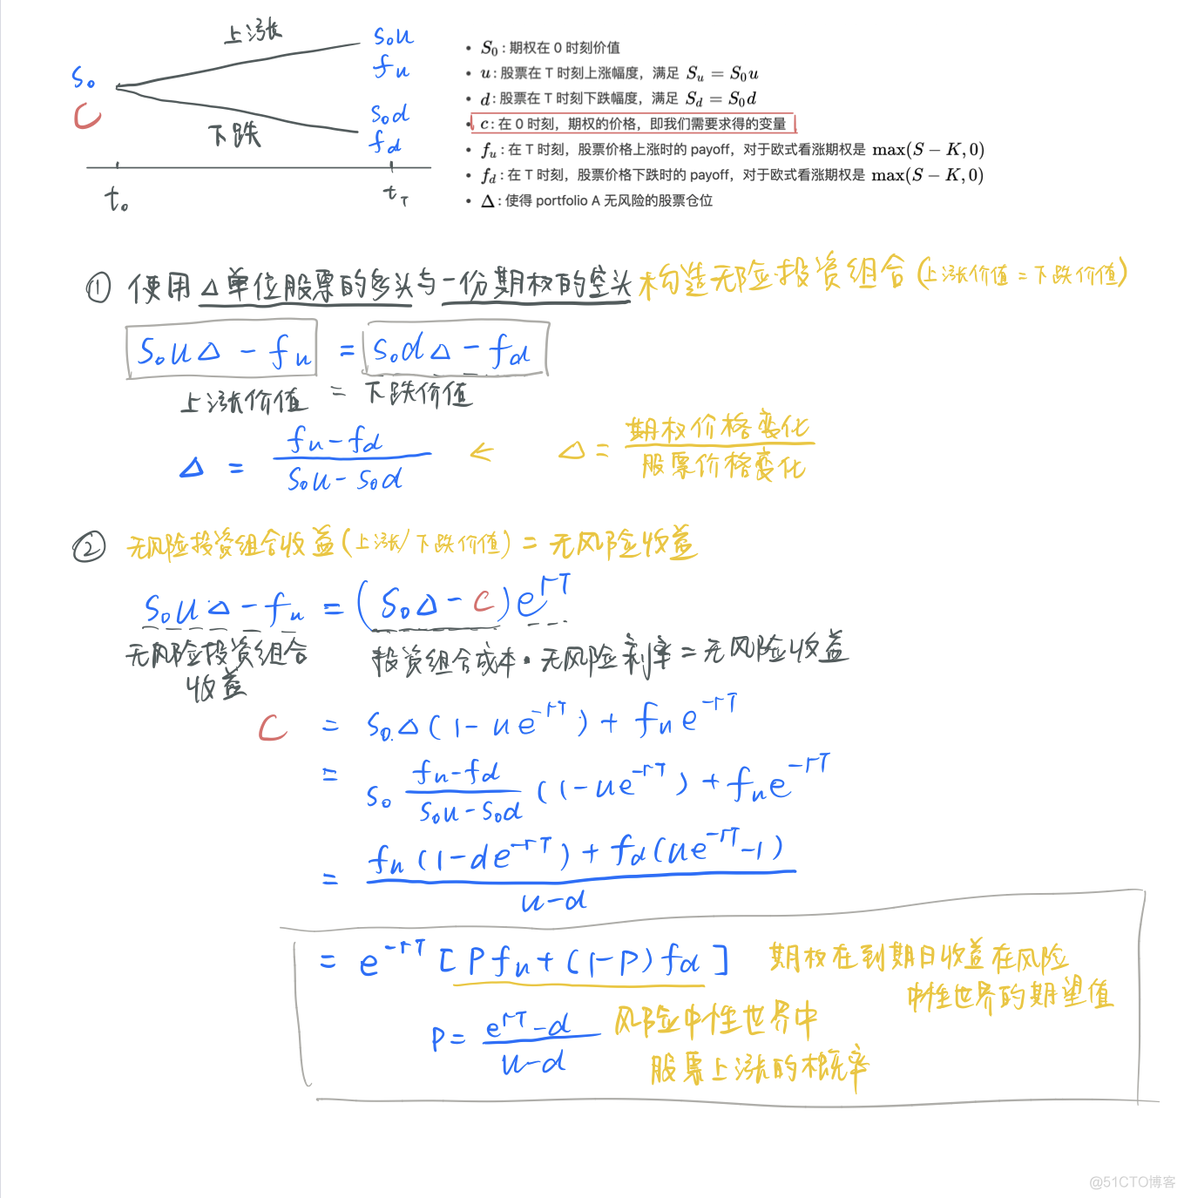 上涨
S₀u
fu
S₀
C
S₀d
fd
下跌
t₀
tT
• S₀ : 期权在 0 时刻价值
• u : 股票在 T 时刻上涨幅度，满足 Sᵤ = S₀u
• d : 股票在 T 时刻下跌幅度，满足 S_d = S₀d
• c : 在 0 时刻，期权的价格，即我们需要求得的变量
• fᵤ : 在 T 时刻，股票价格上涨时的 payoff，对于欧式看涨期权是 max(S − K, 0)
• f_d : 在 T 时刻，股票价格下跌时的 payoff，对于欧式看涨期权是 max(S − K, 0)
• Δ : 使得 portfolio A 无风险的股票仓位
① 使用 Δ单位股票的多头与一份期权的空头 构造无险投资组合(上涨价值=下跌价值)
S₀uΔ − fu = S₀dΔ − fd
上涨价值 = 下跌价值
Δ = (fu−fd)/(S₀u−S₀d) ← Δ = 期权价格变化/股票价格变化
② 无风险投资组合收益(上涨/下跌价值) = 无风险收益
S₀uΔ − fu = (S₀Δ − C)e^{rT}
无风险投资组合收益
投资组合成本·无风险利率=无风险收益
C = S₀Δ(1−ue^{−rT}) + fu e^{−rT}
= S₀ (fu−fd)/(S₀u−S₀d) (1−ue^{−rT}) + fu e^{−rT}
= [fu(1−de^{−rT}) + fd(ue^{−rT}−1)]/(u−d)
= e^{−rT}[Pfu+(1−P)fd] 期权在到期日收益在风险
中性世界的期望值
P = (e^{rT}−d)/(u−d) 风险中性世界中
股票上涨的概率
@51CTO博客